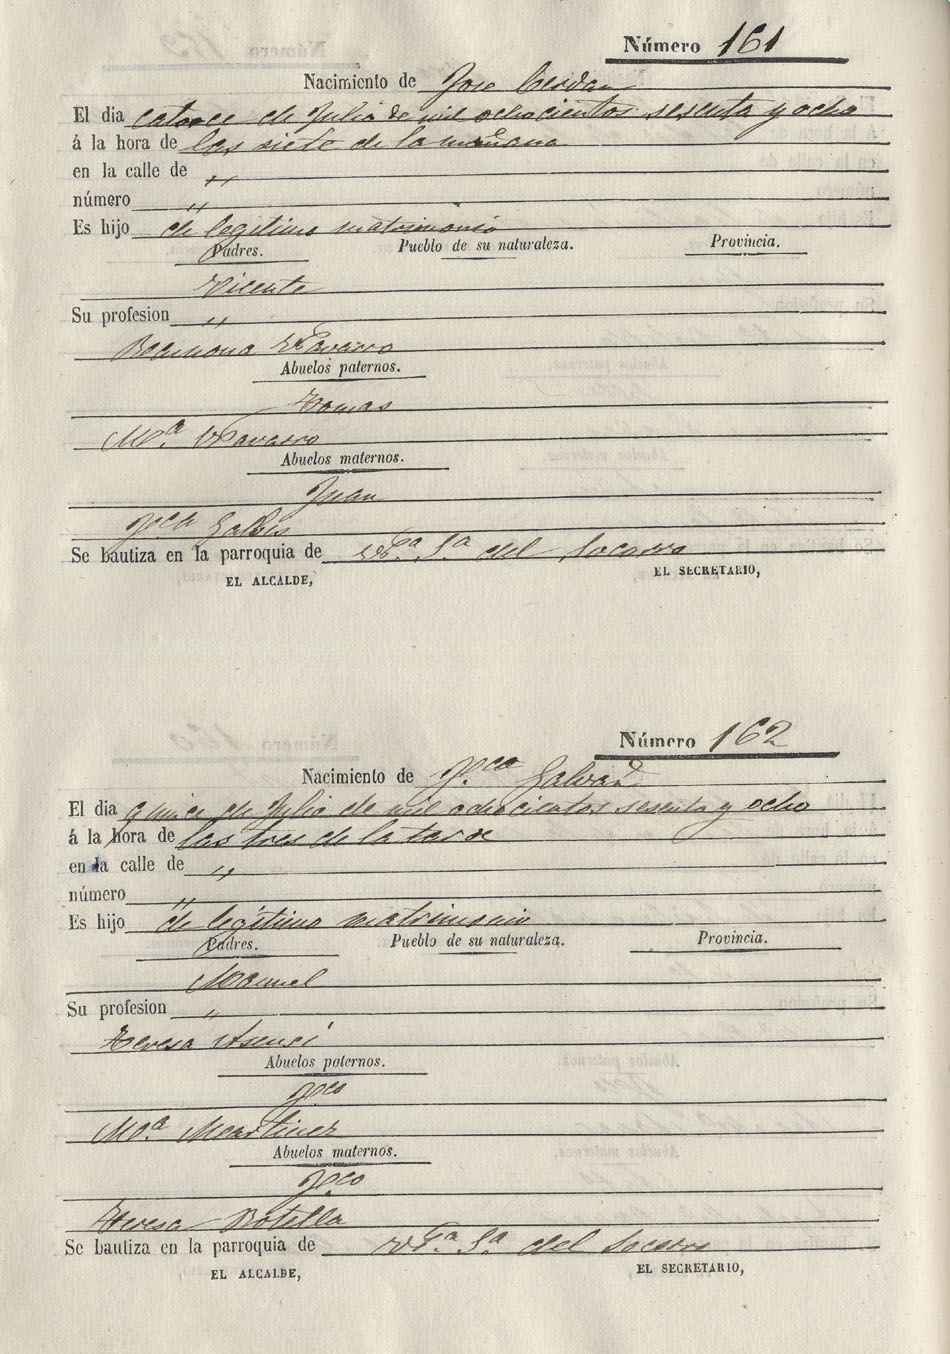 Número 161
Nacimiento de Jose Cerdan
El dia catorce de Julio de mil ochocientos sesenta y ocho
á la hora de las siete de la mañana
en la calle de "
número "
Es hijo de legitimo matrimonio
Padres. Pueblo de su naturaleza. Provincia.
Vicente
Su profesion "
Ramona Navarro
Abuelos paternos.
Tomas
Mª. Navarro
Abuelos maternos.
Juan
Fca Galbis
Se bautiza en la parroquia de Nª. Sª del Socorro
EL ALCALDE, EL SECRETARIO,
Número 162
Nacimiento de Fca Galvañ
El dia quince de Julio de mil ochocientos sesenta y ocho
á la hora de las tres de la tarde
en la calle de "
número "
Es hijo de legítimo matrimonio
Padres. Pueblo de su naturaleza. Provincia.
Manuel
Su profesion "
Teresa Asencí
Abuelos paternos.
Fco
Mª. Martinez
Abuelos maternos.
Fco
Teresa Botella
Se bautiza en la parroquia de Nª. Sª del Socorro
EL ALCALDE, EL SECRETARIO,